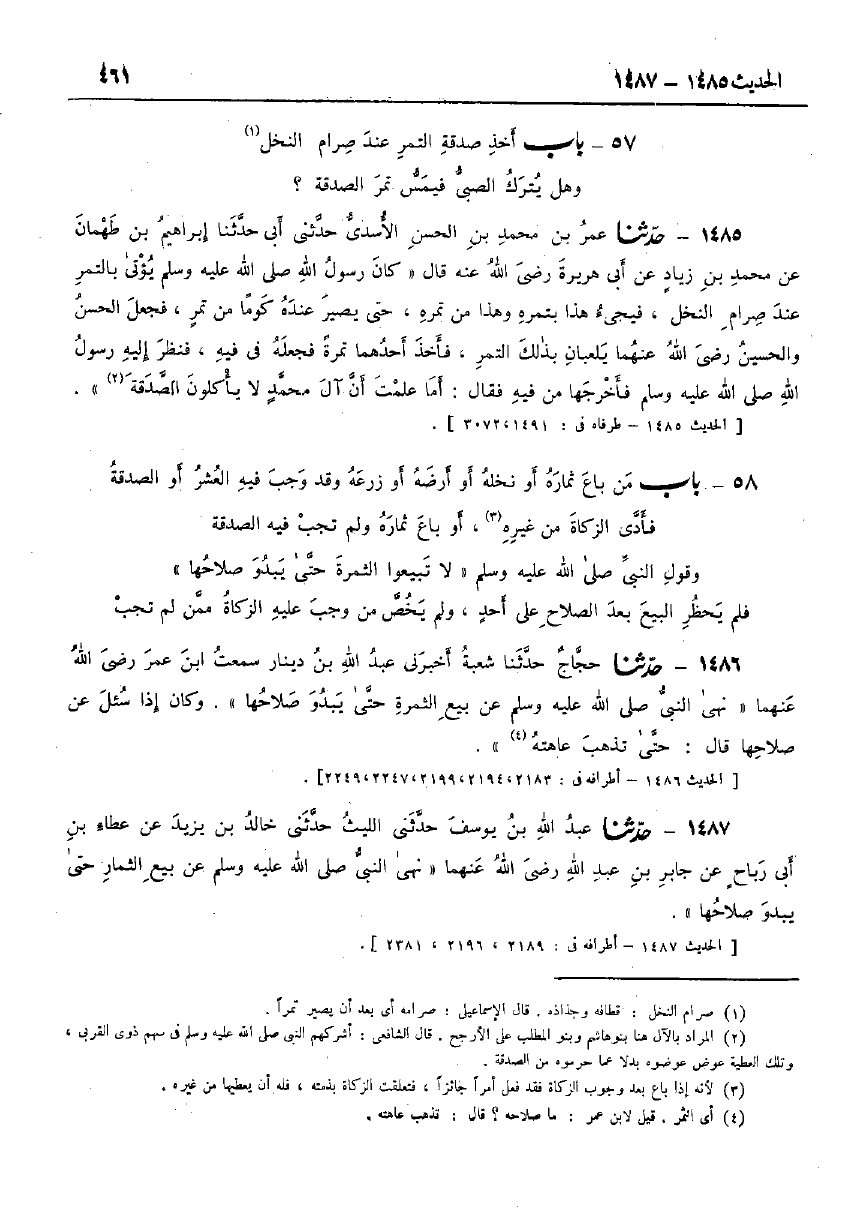 الحديث ١٤٨٥ – ١٤٨٧ ٤٦١
٥٧ – باب أخذِ صدقةِ التمرِ عندَ صِرام النخل(١)
وهل يُترَكُ الصبىُّ فيمَسُّ تمرَ الصدقة ؟
١٤٨٥ – حدّثنا عمرُ بن محمدِ بنِ الحسنِ الأُسدىُّ حدَّثنى أبى حدَّثَنا إبراهيمُ بن طَهْمانَ
عن محمدِ بنِ زيادٍ عن أبى هريرةَ رضىَ اللهُ عنه قال « كانَ رسولُ اللهِ صلى الله عليه وسلم يُؤْتىٰ بالتمرِ
عندَ صِرامِ النخل ، فيجىءُ هذا بتمرهِ وهذا من تمرهِ ، حتى يصيرَ عندَهُ كَومًا من تمرٍ ، فجعلَ الحسنُ
والحسينُ رضىَ اللهُ عنهُما يَلعبانِ بذٰلكَ التمرِ ، فأخذَ أحدُهما تمرةً فجعلَهُ فى فيهِ ، فنظرَ إليهِ رسولُ
اللهِ صلى الله عليه وسلم فأخرجَها من فيهِ فقال : أمَا علمْتَ أنَّ آلَ محمَّدٍ لا يأكلونَ الصَّدَقةَ(٢) » .
[ الحديث ١٤٨٥ – طرفاه فى : ١٤٩١،٣٠٧٢ ] .
٥٨ – باب مَن باعَ ثمارَهُ أو نخلهُ أو أرضَهُ أو زرعَهُ وقد وَجبَ فيهِ العُشرُ أو الصدقةُ
فأدَّى الزكاةَ من غيرِهِ(٣) ، أو باعَ ثمارَهُ ولم تجبْ فيه الصدقة
وقولِ النبىِّ صلىٰ الله عليه وسلم « لا تَبيعوا الثمرةَ حتَّىٰ يَبدُوَ صلاحُها »
فلم يَحظُرِ البيعَ بعدَ الصلاحِ على أحدٍ ، ولم يَخُصَّ من وجبَ عليهِ الزكاةُ ممَّن لم تجبْ
١٤٨٦ – حدّثنا حجاجٌ حدَّثَنا شعبةُ أخبرَنى عبدُ اللهِ بنُ دينار سمعتُ ابنَ عمرَ رضىَ اللهُ
عَنهما « نهىٰ النبىُّ صلى الله عليه وسلم عن بيعِ الثمرةِ حتَّىٰ يَبدُوَ صَلاحُها » . وكان إذا سُئلَ عن
صلاحِها قال : حتَّىٰ تذهبَ عاهتهُ(٤) » .
[ الحديث ١٤٨٦ – أطرافه فى : ٢١٨٣،٢١٩٤،٢١٩٩،٢٢٤٧،٢٢٤٩] .
١٤٨٧ – حدّثنا عبدُ اللهِ بنُ يوسفَ حدَّثَنى الليثُ حدَّثَنى خالدُ بن يزيدَ عن عطاءِ بنِ
أبى رَباحٍ عن جابرِ بنِ عبدِ اللهِ رضىَ اللهُ عَنهما « نهىٰ النبىُّ صلى الله عليه وسلم عن بيعِ الثمارِ حتىٰ
يبدوَ صلاحُها » .
[ الحديث ١٤٨٧ – أطرافه فى : ٢١٨٩ ، ٢١٩٦ ، ٢٣٨١ ] .
(١) صرام النخل : قطافه وجذاذه . قال الإسماعيلى : صرامه أى بعد أن يصير تمرآ .
(٢) المراد بالآل هنا بنوهاشم وبنو المطلب على الأرجح . قال الشافعى : أشركهم النبى صلى الله عليه وسلم فى سهم ذوى القربى ،
وتلك العطية عوض عوضوه بدلا عما حرموه من الصدقة .
(٣) لأنه إذا باع بعد وجوب الزكاة فقد فعل أمرآ جائزآ ، فتعلقت الزكاة بذمته ، فله أن يعطيها من غيره .
(٤) أى الثمر . قيل لابن عمر : ما صلاحه ؟ قال : تذهب عاهته .